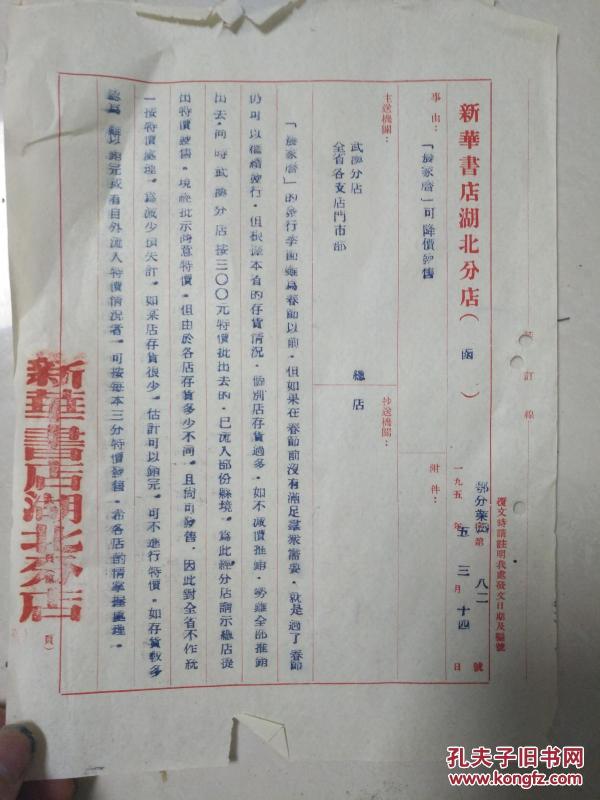 裝訂線
覆文時請註明我處發文日期及編號
新華書店湖北分店（函）
鄂分業 字第 八二 號
一九五五年三月十四日
事由：「農家曆」可降價發售
附件：
主送機關：
武漢分店
全省各支店門市部
抄送機關：
總店
「農家曆」的發行季節雖爲春節以前，但如果在春節前沒有滿足羣衆需要，就是過了春節
仍可以繼續發行。但根據本省的存貨情況，個別店存貨過多，如不減價推銷，勢難全部推銷
出去，同時武漢分店按三〇〇元特價批出去的，已流入部份縣境。爲此經分店請示總店從
出特價發售。現經批示同意特價，但由於各店存貨多少不同，且尚可發售，因此對全省不作統
一按特價處理。爲減少損失計，如某店存貨很少，估計可以銷完，可不進行特價，如存貨較多
認爲難以銷完或有目外流入特價情況者，可按每本三分特價發售，希各店酌情掌握處理。
新華書店湖北分店
頁）
孔夫子旧书网
www.kongfz.com